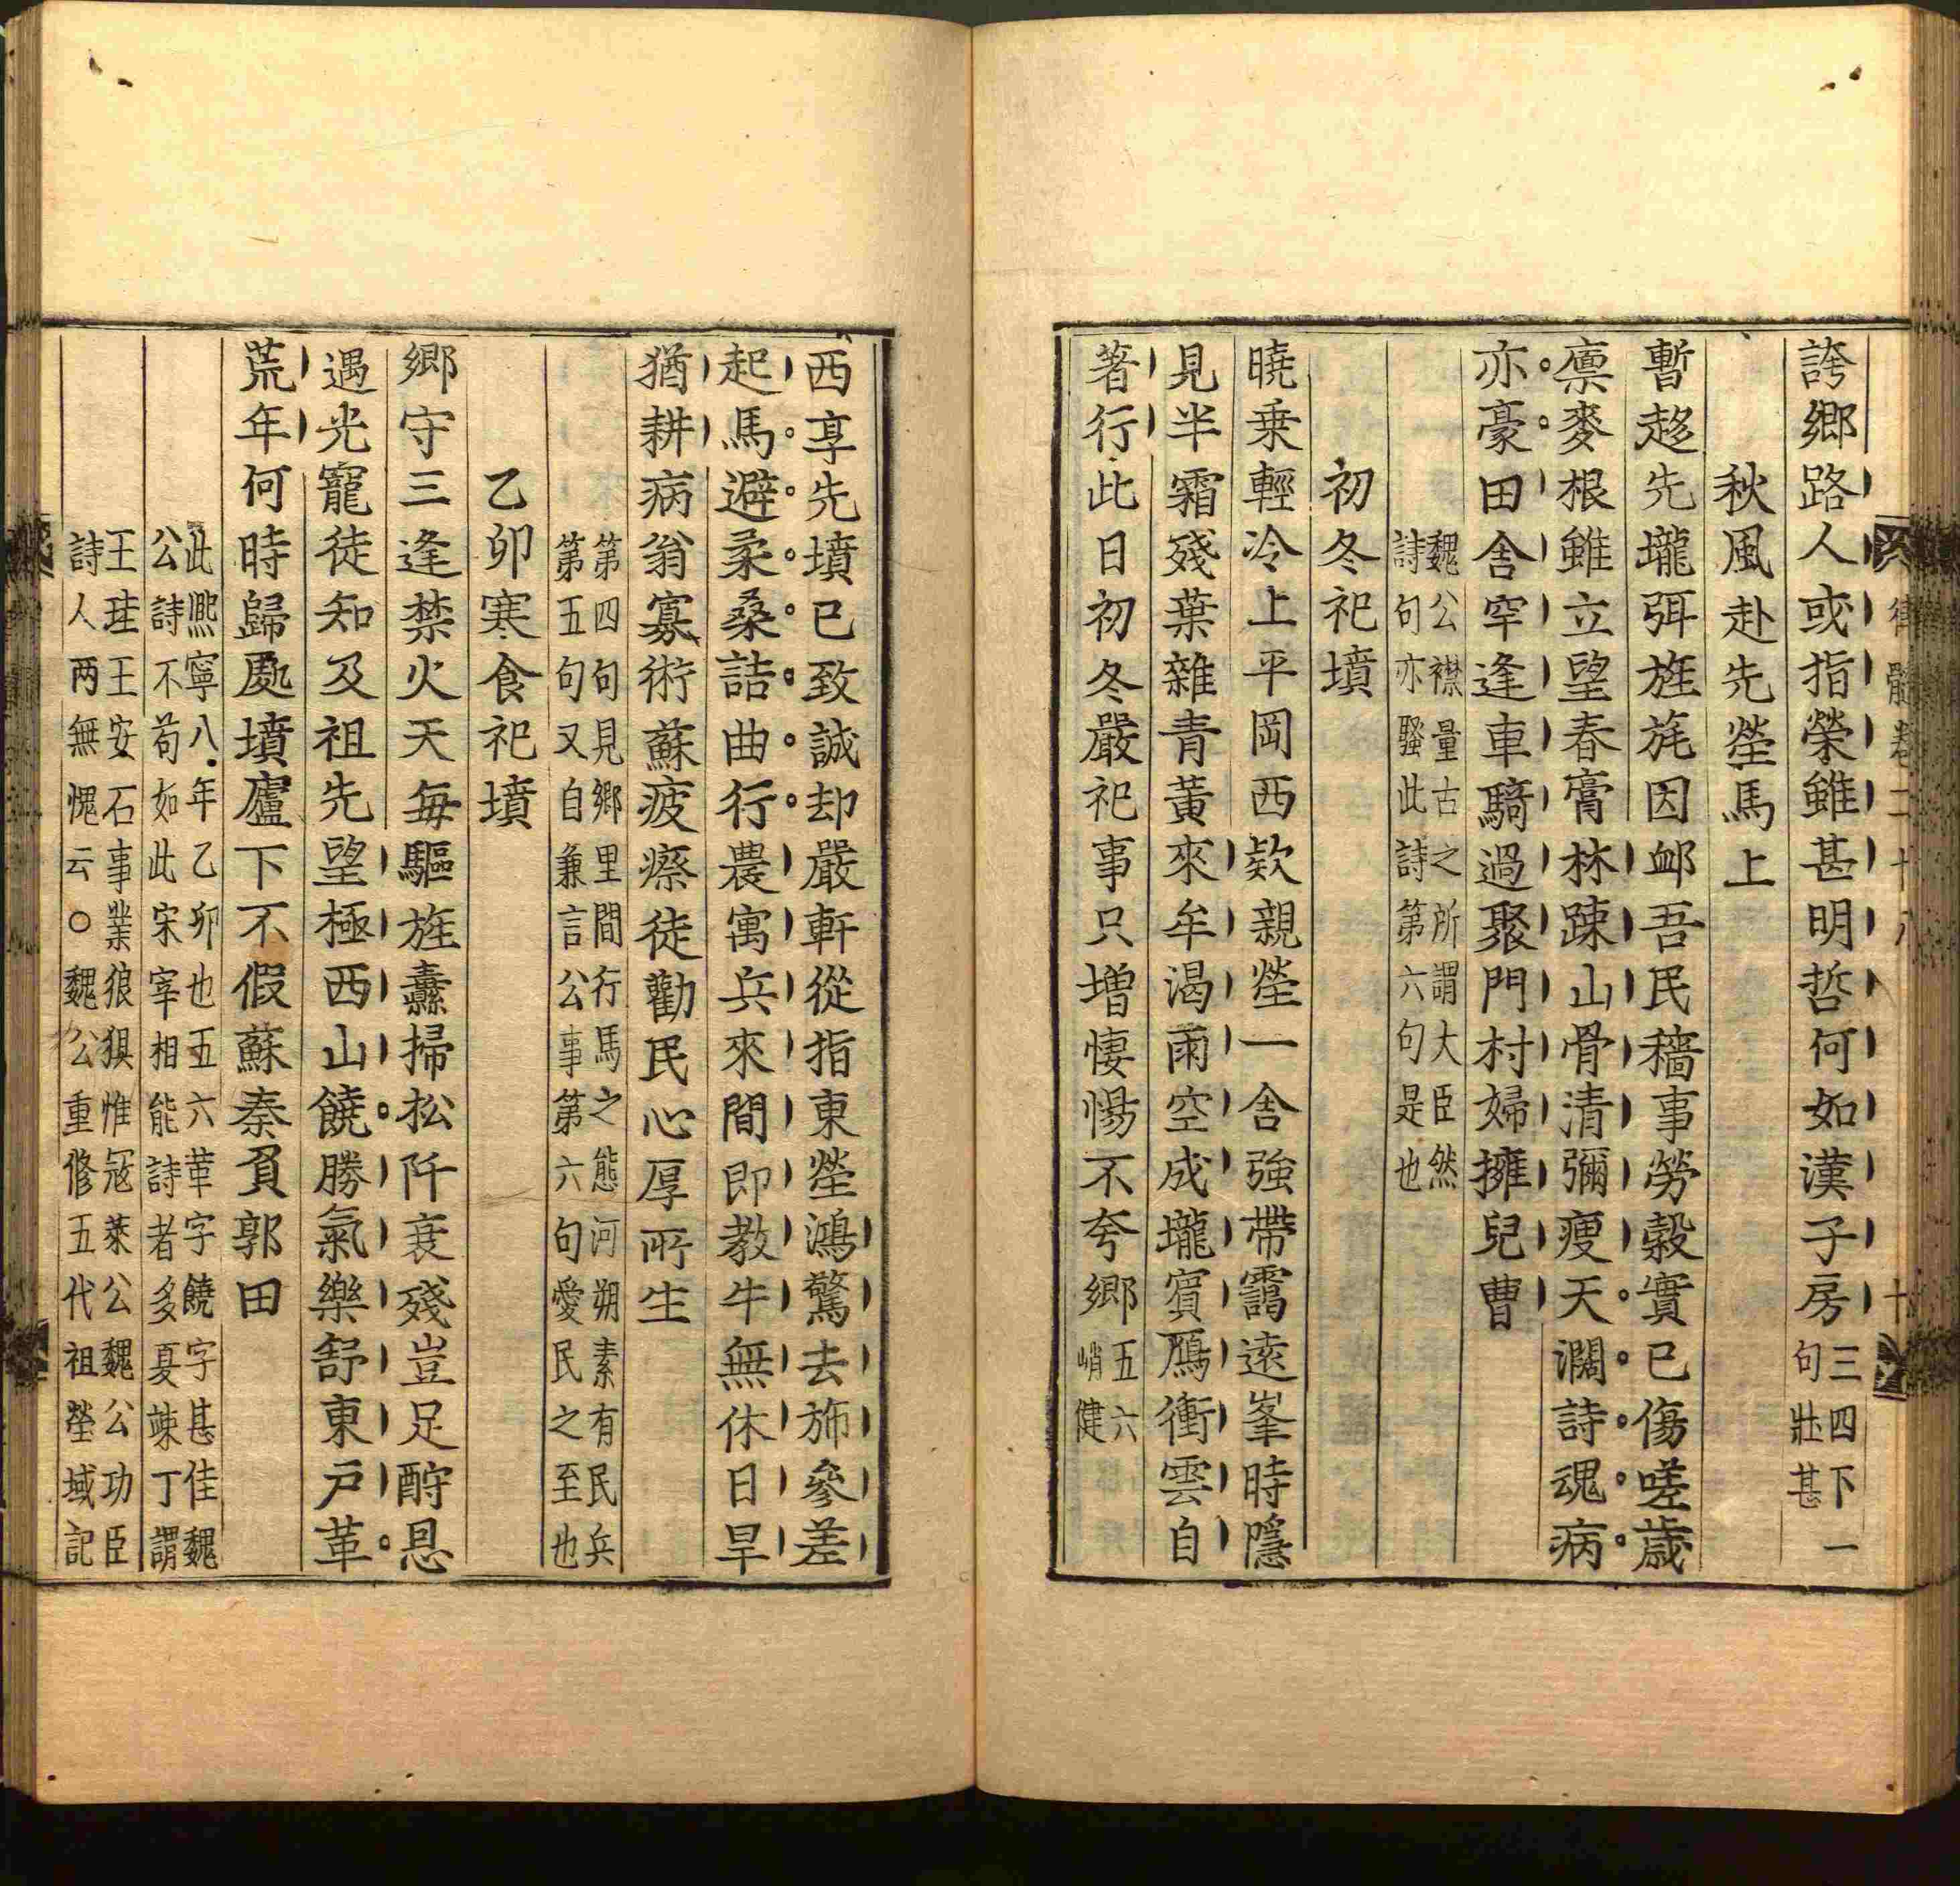 律髓卷二十八
十
誇鄉路人或指榮雖甚明哲何如漢子房三四下一
句壯甚
秋風赴先塋馬上
暫趍先壠弭旌旄因䘏吾民穡事勞穀實已傷嗟歲
廪麥根雖立望春膏林踈山骨清彌瘦天濶詩魂病
亦豪田舎罕逢車騎過聚門村婦擁兒曹
魏公襟量古之所謂大臣然
詩句亦騷此詩第六句是也
初冬祀墳
曉乗輕冷上平岡西欵親塋一舎強帶靄遠峯時隱
見半霜殘葉雜青黃來牟渇雨空成壠賓鴈衝雲自
著行此日初冬嚴祀事只增悽愓不夸鄉五六
峭健
西享先墳已致誠却嚴軒從指東塋鴻驚去斾參差
起馬避柔桑詰曲行農寓兵來間即教牛無休日旱
猶耕病翁寡術蘇疲瘵徒勸民心厚所生
第四句見鄉里間行馬之態河朔素有民兵
第五句又自兼言公事第六句愛民之至也
乙卯寒食祀墳
鄉守三逢禁火天每驅旌纛掃松阡衰殘豈足酧恩
遇光寵徒知及祖先望極西山饒勝氣樂舒東戶革
荒年何時歸處墳廬下不假蘇秦負郭田
此熈寧八年乙卯也五六革字饒字甚佳魏
公詩不苟如此宋宰相能詩者多夏竦丁謂
王珪王安石事業狼狽惟冦萊公魏公功臣
詩人两無愧云○魏公重修五代祖塋域記